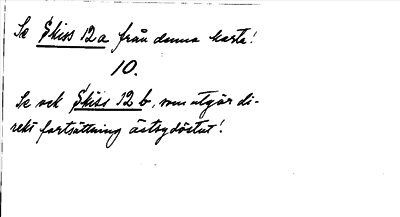 Se Skiss 12a från denna karta!
10.
Se och Skiss 12b, som utgör di-
rekt fortsättning åt ostsydöstut!